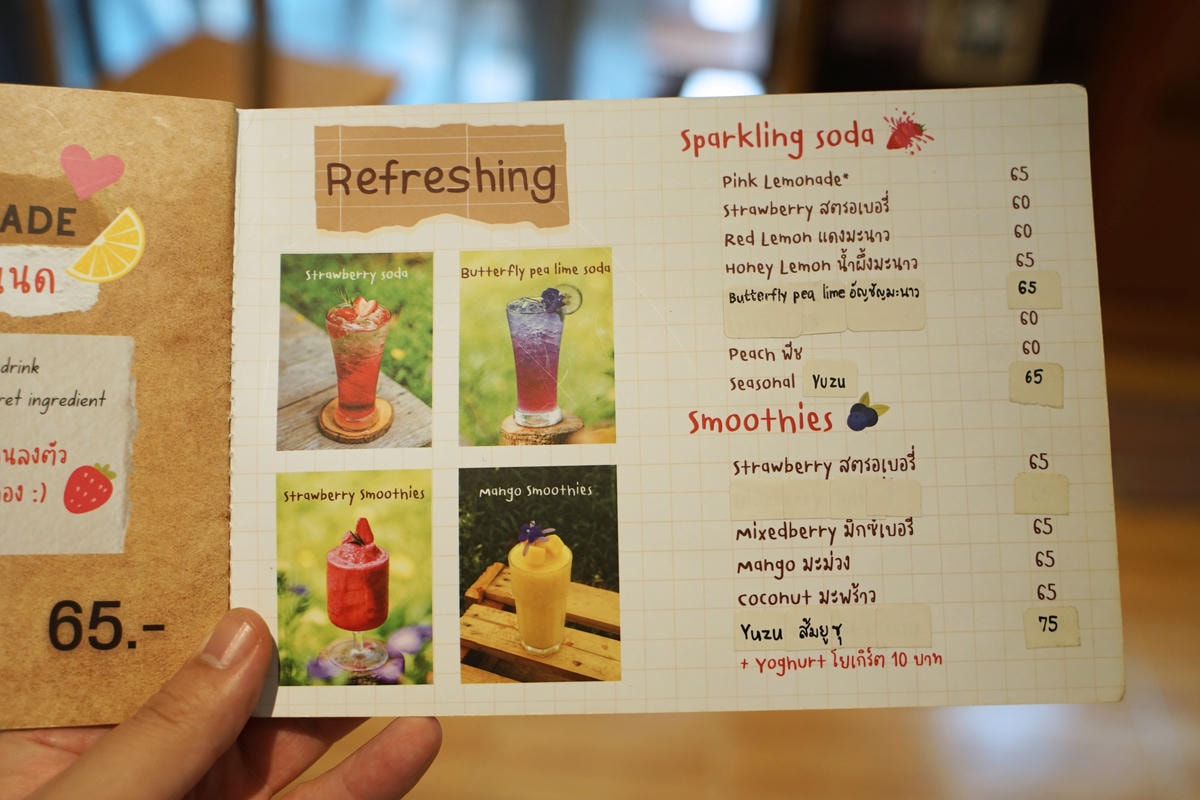 ADE
นด
drink
ret ingredient
นลงตัว
อง :)
65.-
Refreshing
Strawberry soda
Butterfly pea lime soda
Strawberry Smoothies
Mango Smoothies
Sparkling soda
Pink Lemonade* 65
Strawberry สตรอเบอรี่ 60
Red Lemon แดงมะนาว 60
Honey Lemon น้ำผึ้งมะนาว 65
Butterfly pea lime อัญชัญมะนาว 65
60
Peach พีช 60
Seasonal Yuzu 65
Smoothies
Strawberry สตรอเบอรี่ 65
Mixedberry มิกซ์เบอรี่ 65
Mango มะม่วง 65
Coconut มะพร้าว 65
Yuzu ส้มยูซุ 75
+ Yoghurt โยเกิร์ต 10 บาท